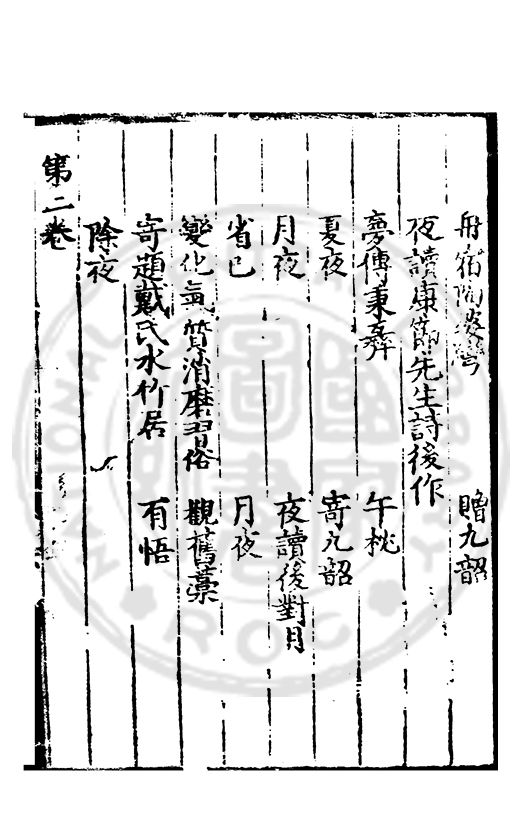 舟宿陶婆灣　贈九韶
夜讀康節先生詩後作
夢傅秉彝　午枕
夏夜　寄九韶
月夜　夜讀後對月
省己　月夜
變化氣質消磨習俗　觀舊藁
寄題戴氏水竹居　有悟
除夜
第二卷